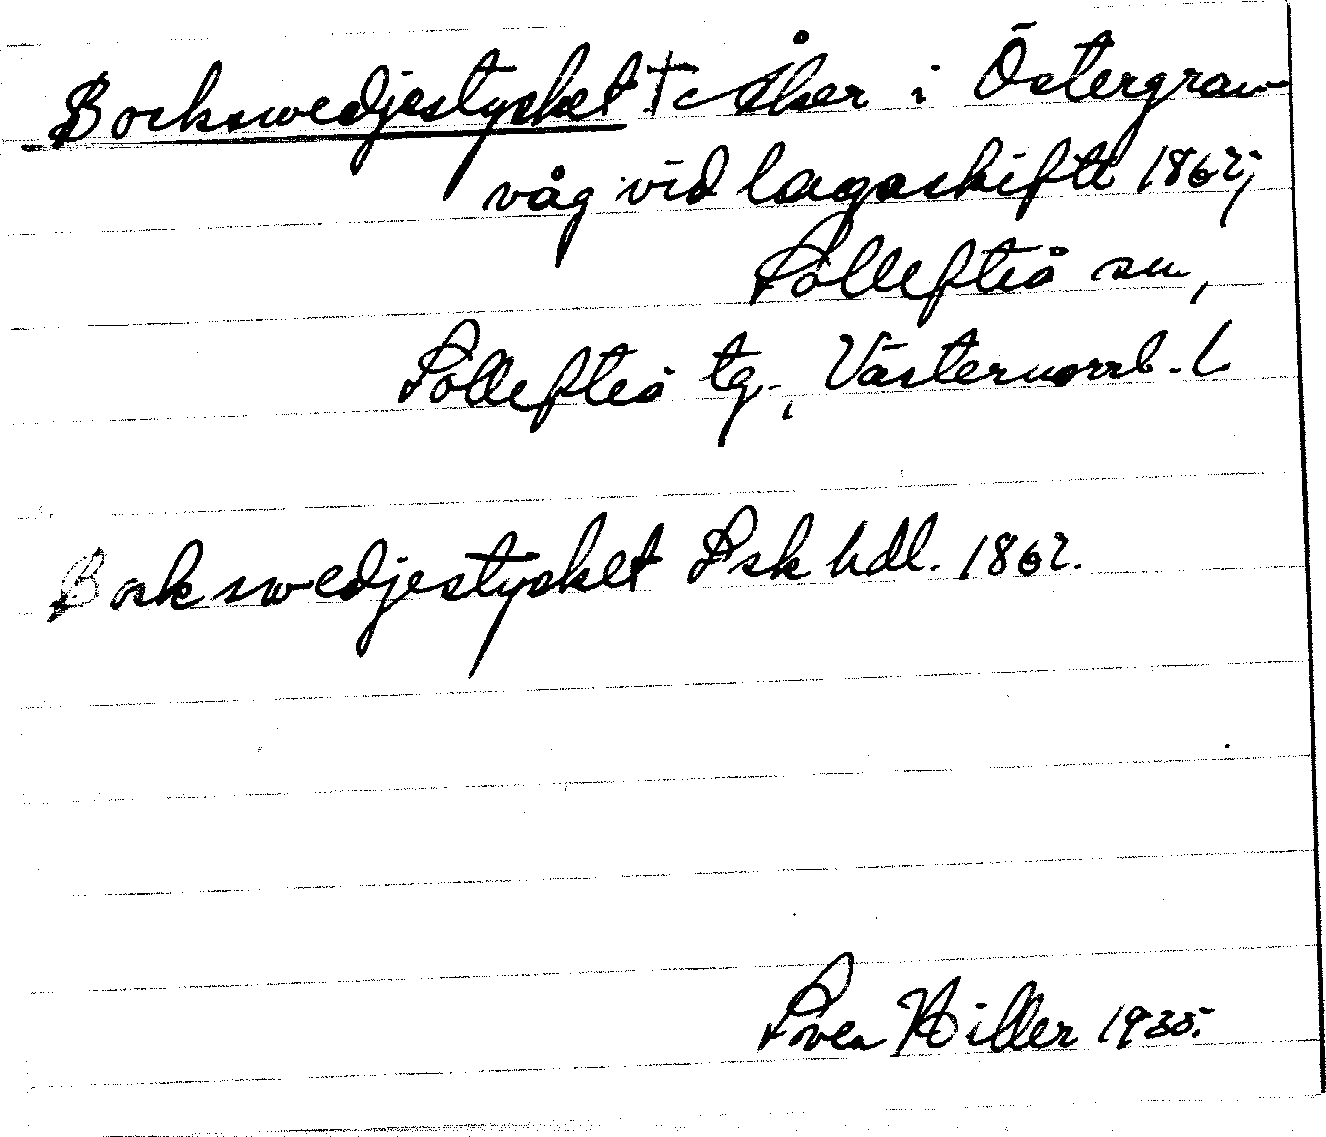 Bockswedjestycket † Åker i Östergran-
våg vid lagaskifte 1862;
Sollefteå sn,
Sollefteå tg., Västernorrl. l.
Bockswedjestycket Lsk hdl. 1862.
Sven Hiller 1935.